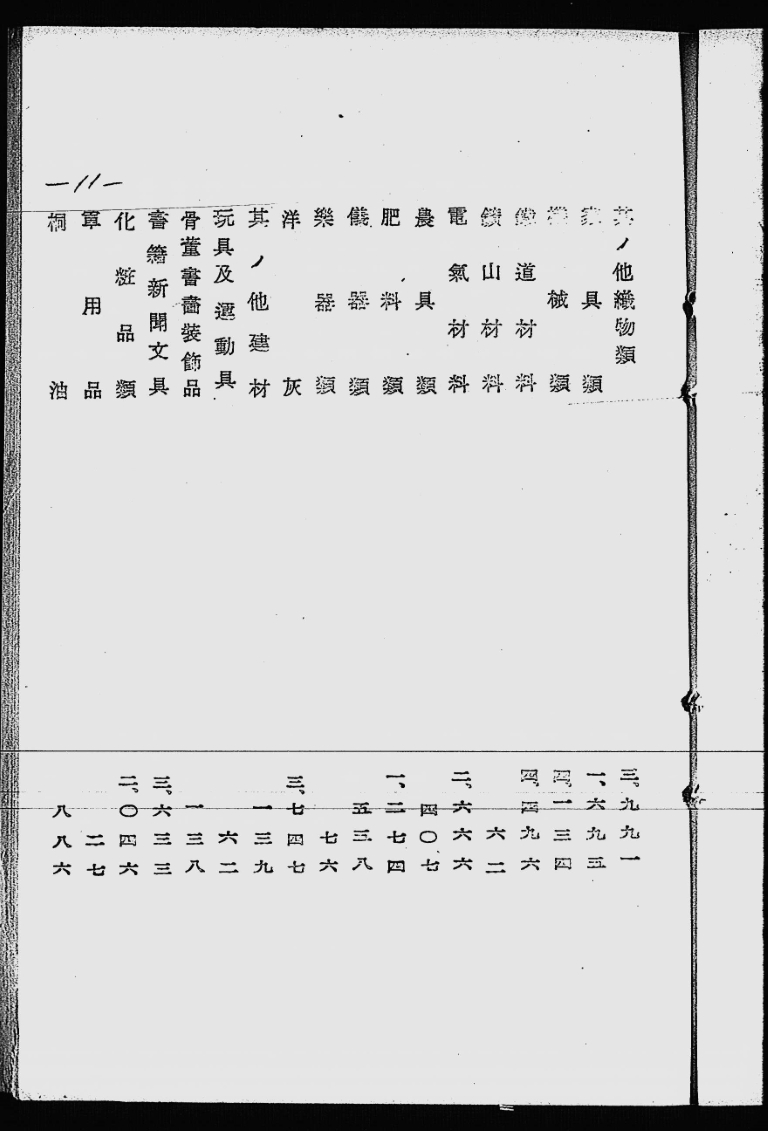 其ノ他織物類 三、九九一
家具類 一、六九五
機械類 四、一三四
鐵道材料 四、四九六
鑛山材料 六二
電氣材料 二、六六六
農具類 四〇七
肥料類 一、二七四
儀器類 五三八
樂器類 七六
洋灰 三、七四七
其ノ他建材 一三九
玩具及運動具 六二
骨董書畵装飾品 一三八
書籍新聞文具 三、六三三
化粧品類 二、〇四六
軍用品 二七
桐油 八八六
—11—